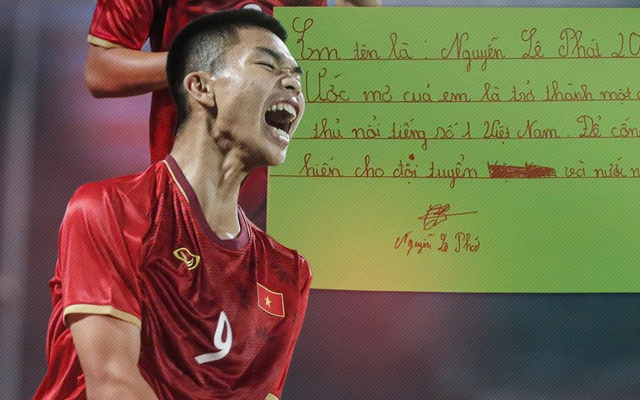 Em tên là : Nguyễn Lê Phát 20
Ước mơ của em là trở thành một
thủ nổi tiếng số 1 Việt Nam. Để cốn
hiến cho đội tuyển và nước
Nguyễn Lê Phát
9